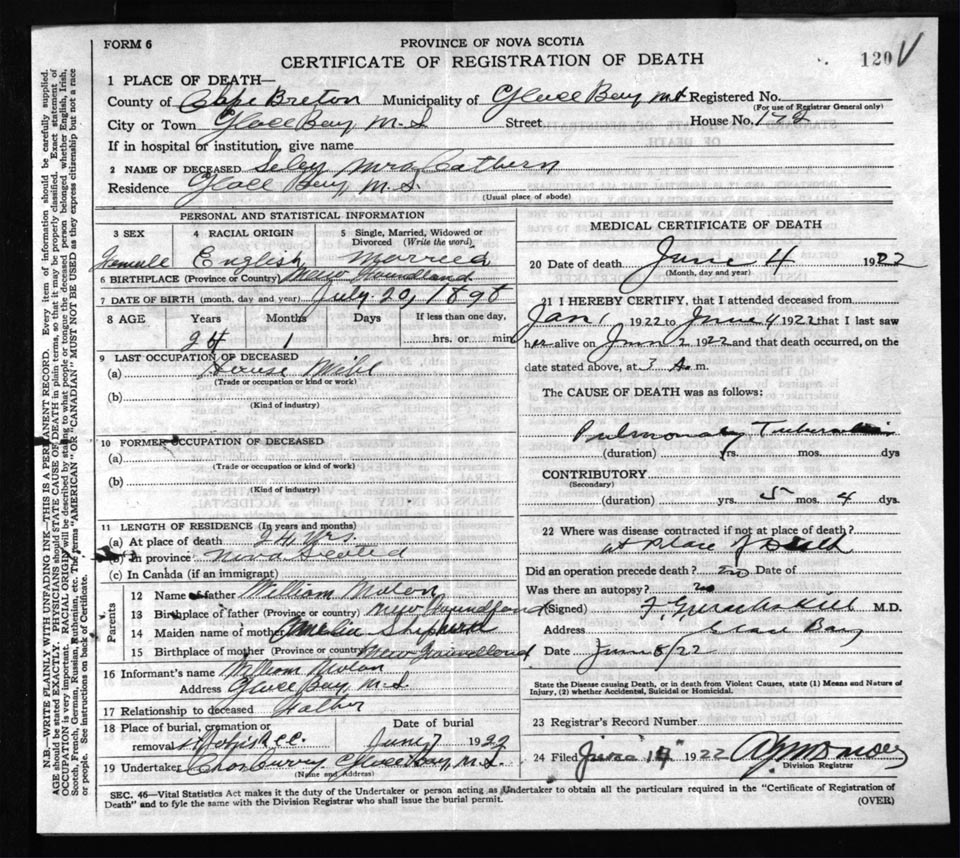 FORM 6
PROVINCE OF NOVA SCOTIA
CERTIFICATE OF REGISTRATION OF DEATH
120 V
1 PLACE OF DEATH—
County of Cape Breton Municipality of Glace Bay N.S Registered No.
(For use of Registrar General only)
City or Town Glace Bay N.S Street House No. 172
If in hospital or institution, give name
2 NAME OF DECEASED Seley Mrs Cathern
Residence Glace Bay N.S.
(Usual place of abode)
PERSONAL AND STATISTICAL INFORMATION
3 SEX 4 RACIAL ORIGIN 5 Single, Married, Widowed or Divorced (Write the word)
Female English Married
6 BIRTHPLACE (Province or Country) New Foundland
7 DATE OF BIRTH (month, day and year) July 20, 1898
8 AGE Years Months Days If less than one day,
24 1 hrs. or min
9 LAST OCCUPATION OF DECEASED
(a) House
(Trade or occupation or kind or work)
(b)
(Kind of industry)
10 FORMER OCCUPATION OF DECEASED
(a)
(Trade or occupation or kind of work)
(b)
(Kind of industry)
11 LENGTH OF RESIDENCE (In years and months)
(a) At place of death Yrs.
(b) In province Nova Scotia
(c) In Canada (if an immigrant)
Parents
12 Name of father William
13 Birthplace of father (Province or country) New Foundland
14 Maiden name of mother
15 Birthplace of mother (Province or country) New Foundland
16 Informant's name William
Address Glace Bay N.S
17 Relationship to deceased Father
18 Place of burial, cremation or removal Date of burial
June 7 1922
19 Undertaker Chas Curry Glace Bay N.S.
(Name and Address)
MEDICAL CERTIFICATE OF DEATH
20 Date of death June 4 1922
(Month, day and year)
21 I HEREBY CERTIFY, that I attended deceased from
Jan 1 1922 to June 4 1922 that I last saw
her alive on June 2 1922 and that death occurred, on the
date stated above, at 3 A. m.
The CAUSE OF DEATH was as follows:
Pulmonary Tuberculosis
(duration) yrs. mos. dys
CONTRIBUTORY
(Secondary)
(duration) yrs. 5 mos. 4 dys.
22 Where was disease contracted if not at place of death?
at Place of Death
Did an operation precede death? no Date of
Was there an autopsy? no
(Signed) M.D.
Address Glace Bay
Date June 8/22
State the Disease causing Death, or in death from Violent Causes, state (1) Means and Nature of Injury, (2) whether Accidental, Suicidal or Homicidal.
23 Registrar's Record Number
24 Filed June 14 1922
Division Registrar
SEC. 46—Vital Statistics Act makes it the duty of the Undertaker or person acting as Undertaker to obtain all the particulars required in the "Certificate of Registration of
Death" and to fyle the same with the Division Registrar who shall issue the burial permit.
(OVER)
N.B.—WRITE PLAINLY WITH UNFADING INK—THIS IS A PERMANENT RECORD. Every item of information should be carefully supplied.
AGE should be stated EXACTLY. PHYSICIANS should STATE CAUSE OF DEATH in plain terms, so that it may be properly classified. Exact statement of
OCCUPATION is very important. RACIAL ORIGIN will be described by stating to what people or tongue the deceased person belonged whether English, Irish,
Scotch, French, German, Russian, Ruthenian, etc. The terms "AMERICAN" OR "CANADIAN" MUST NOT BE USED as they express citizenship but not a race
or people. See instructions on back of Certificate.